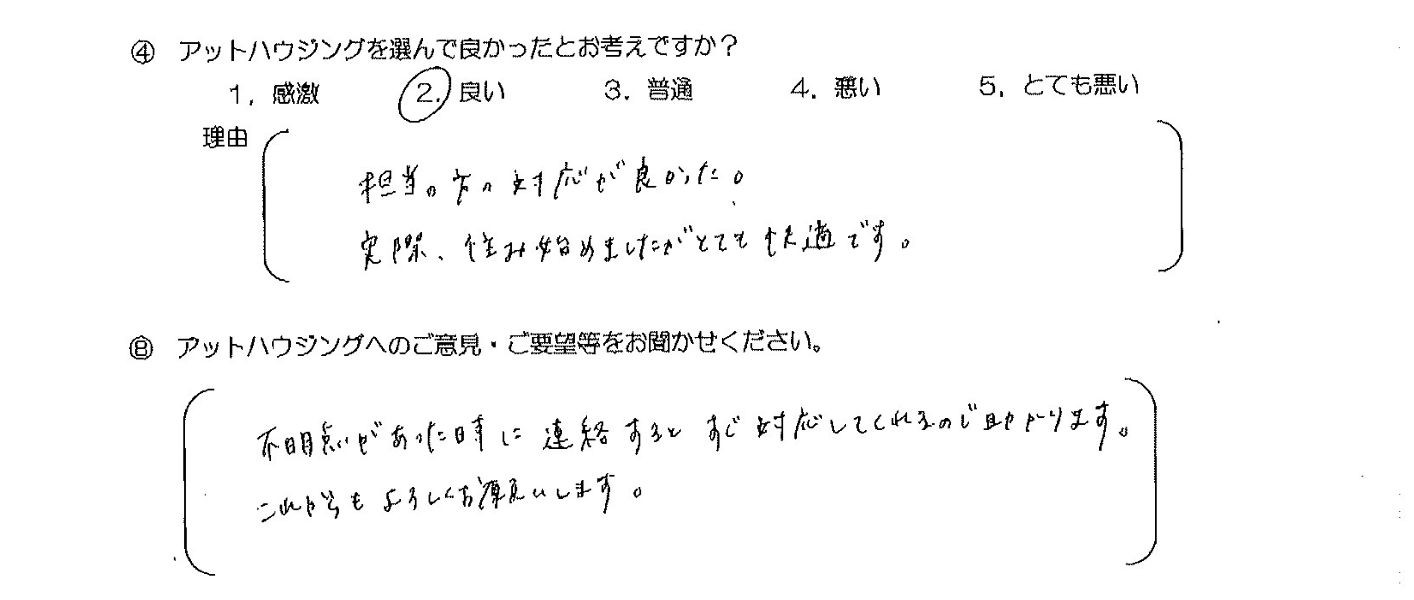 ④ アットハウジングを選んで良かったとお考えですか？
1. 感激 2. 良い 3. 普通 4. 悪い 5. とても悪い
理由
担当の方の対応が良かった。
実際、住み始めましたがとても快適です。
⑧ アットハウジングへのご意見・ご要望等をお聞かせください。
不明点があった時に連絡するとすぐ対応してくれるので助かります。
これからもよろしくお願いします。